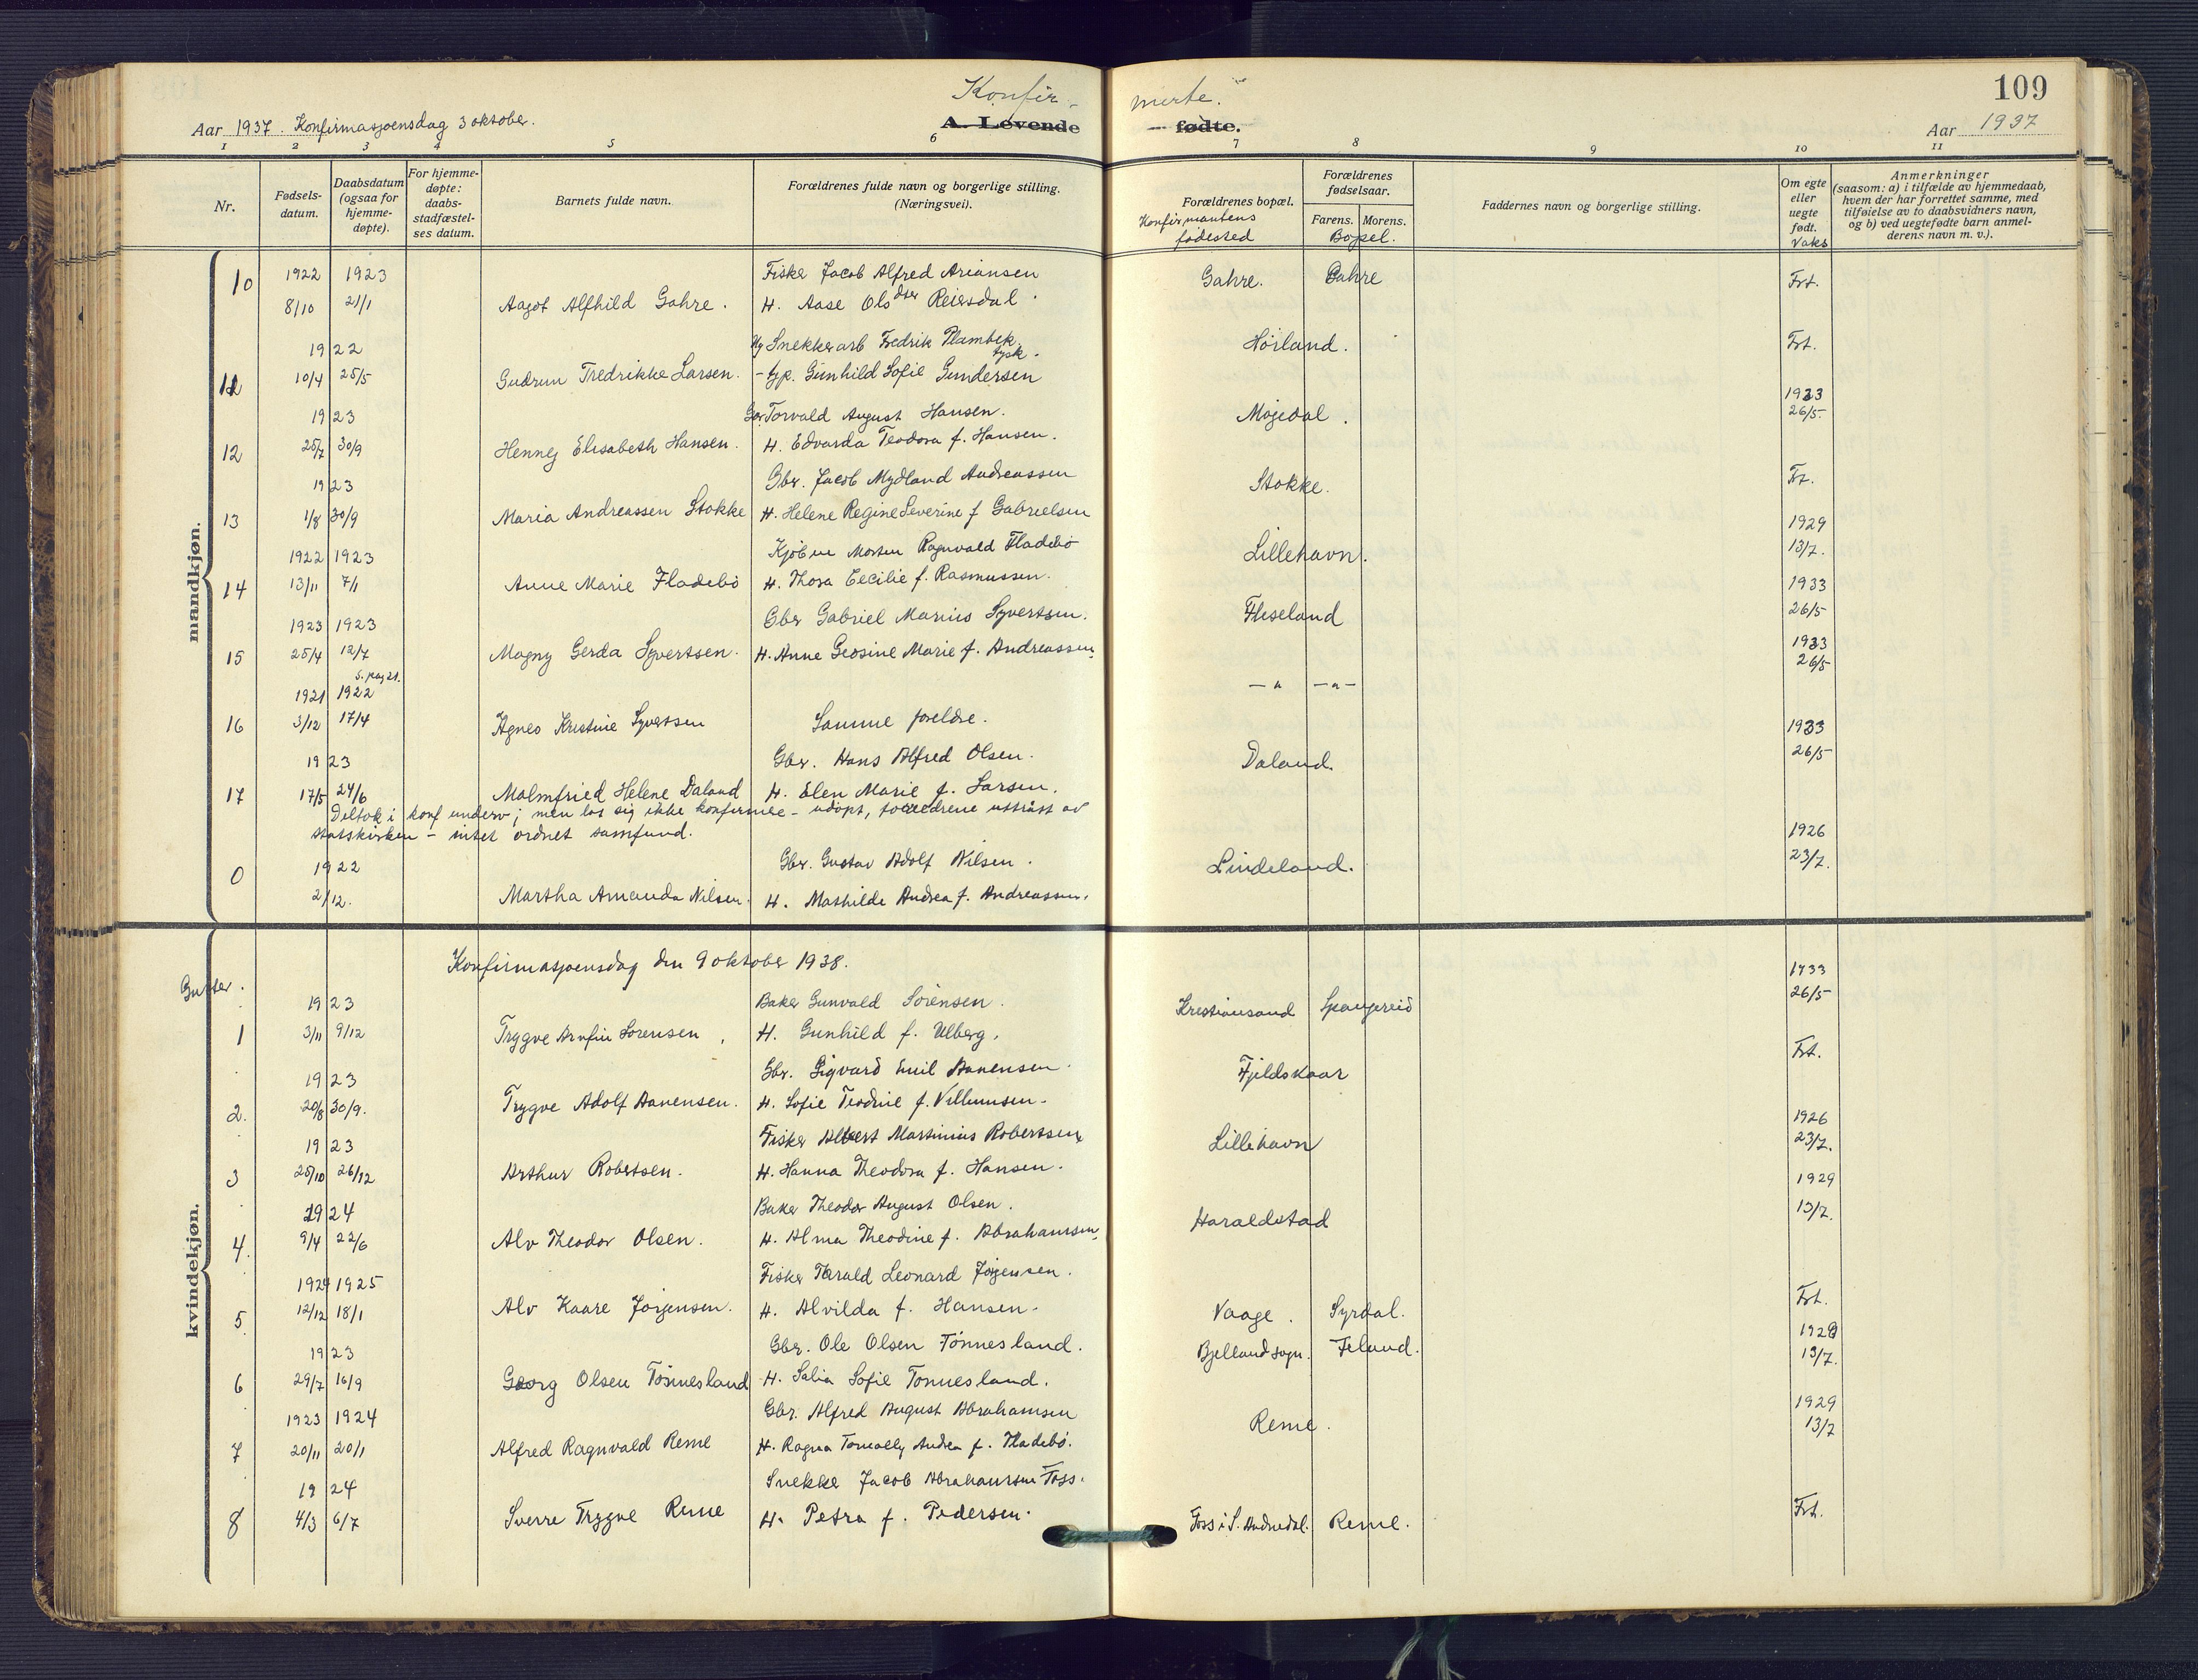 Konfir- merte.
109
Aar 1937. Konfirmasjonsdag 3 oktober.
A. Levende fødte.
Aar 1937
1 2 3 4 5 6 7 8 9 10 11
Nr.
Fødsels-
datum.
Daabsdatum
(ogsaa for
hjemme-
døpte).
For hjemme-
døpte:
daabs-
stadfæstel-
ses datum.
Barnets fulde navn.
Forældrenes fulde navn og borgerlige stilling.
(Næringsvei).
Forældrenes bopæl.
Konfirmantens
fødested
Forældrenes
fødselsaar.
Farens. Morens.
Bopel.
Faddernes navn og borgerlige stilling.
Om egte
eller
uegte
født.
Vaks
Anmerkninger
(saasom: a) i tilfælde av hjemmedaab,
hvem der har forrettet samme, med
tilføielse av to daabsvidners navn,
og b) ved uegtefødte barn anmel-
derens navn m. v.).
mandkjøn.
10 1922 1923 Fisker Jacob Alfred Ariansen Gahre. Gahre Frt.
8/10 21/1 Aagot Alfhild Gahre. H. Aase Olsdtr Reiersdal.
1922 Ug Snekkerarb Fredrik Plambek tysk. Höiland. Frt.
11 10/4 25/5 Gudrun Fredrikke Larsen. - Gp. Gunhild Sofie Gundersen
1923 Gbr. Torvald August Hansen. Möjedal. 1933 26/5
12 25/7 30/9 Henny Elisabeth Hansen. H. Edvarda Teodora f. Hansen.
1923 Gbr. Jacob Mydland Andreassen Stokke. Frt.
13 1/8 30/9 Maria Andreassen Stokke H. Helene Regine Severine f Gabrielsen
1922 1923 Kjöbm Morten Ragnvald Fladebö Lillehavn. 1929 13/7.
14 13/11 7/1 Anne Marie Fladebö H. Thora Cecilie f. Rasmussen.
1923 1923 Gbr Gabriel Marius Syvertsen. Fleseland 1933 26/5
15 25/4 12/7 Magny Gerda Syvertsen. H. Anne Geosine Marie f. Andreassen.
s. pag 21.
1921 1922 — " — " — 1933 26/5
16 3/12 17/4 Agnes Kristine Syvertsen Samme foreldre.
1923 Gbr. Hans Alfred Olsen. Daland. 1933 26/5
17 17/5 24/6 Malmfried Helene Daland H. Elen Marie f. Larsen.
Deltok i konf underv; men lot sig ikke konfirmere - udöpt, foreldrene uttrått av
statskirken - intet ordnet samfund.
0 1922 Gbr. Gustav Adolf Nilsen. Lindeland. 1926 23/7.
2/12. Martha Amanda Nilsen. H. Mathilde Andrea f. Andreassen.
kvindekjøn.
Konfirmasjonsdag den 9 oktober 1938.
Gutter.
1923 Baker Gunvald Sörensen. Kristiansand Spangereid 1933 26/5
1 3/11 9/12 Trygve Arnfin Sörensen, H. Gunhild f. Ulberg.
1923 Gbr. Sigvard Emil Aanensen. Fjeldskaar Frt.
2. 20/8 30/9. Trygve Adolf Aanensen. H. Sofie Teodine f. Villumsen.
1923 Fisker Albert Martinius Robertsen Lillehavn 1926 23/7.
3 25/10 26/12 Arthur Robertsen. H. Hanna Theodora f. Hansen.
1924 Baker Theodor August Olsen. Haraldstad 1929 13/7.
4. 9/4 22/6 Alv Theodor Olsen. H. Alma Theodine f. Abrahamsen.
1924 1925 Fisker Tarald Leonard Jörgensen.
5. 12/12 18/1 Alv Kaare Jörgensen. H. Alvilda f. Hansen. Vaage. Syrdal. Frt.
1923 Gbr. Ole Olsen Tönnesland. Bjelland sogn. Jeland. 1929 13/7.
6 29/7 16/9 Georg Olsen Tönnesland H. Salia Sofie Tönnesland.
1923 1924 Gbr. Alfred August Abrahamsen Reme. 1929 13/7
7 20/11 20/1 Alfred Ragnvald Reme H. Ragna Tomally Andrea f. Fladebö.
1924 Snekker Jacob Abrahamsen Foss.
8 4/3 6/7 Sverre Trygve Reme H. Petra f. Pedersen. Foss i S. Audnedal. Reme. Frt.